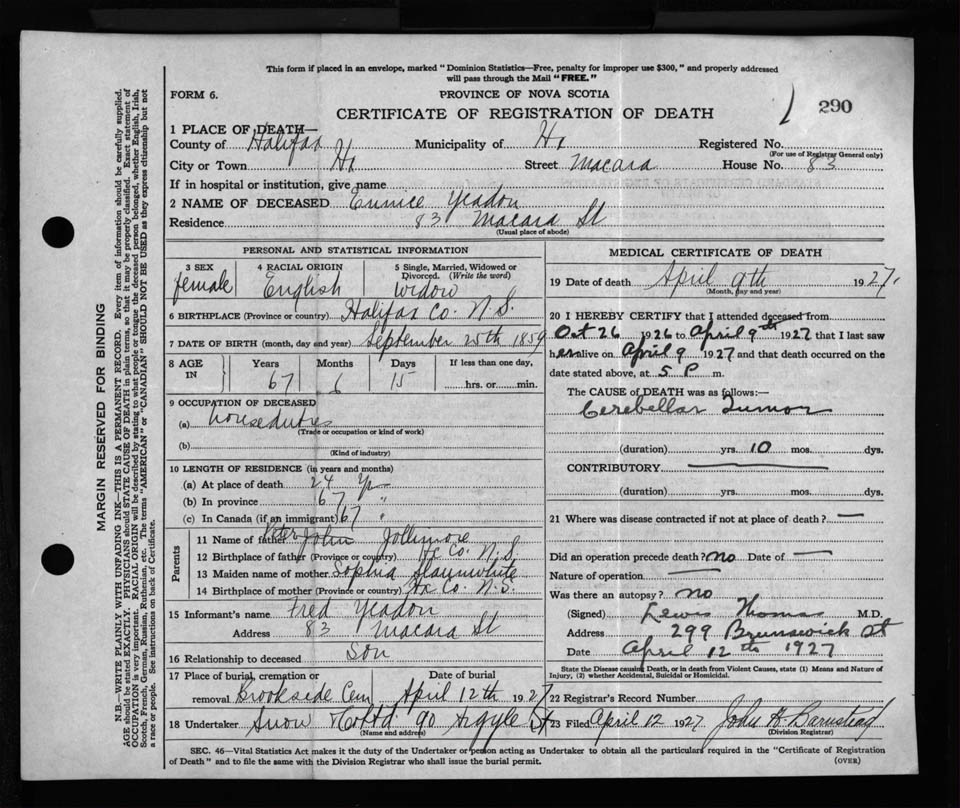 This form if placed in an envelope, marked "Dominion Statistics—Free, penalty for improper use $300," and properly addressed
will pass through the Mail "FREE."
FORM 6.
PROVINCE OF NOVA SCOTIA
290
CERTIFICATE OF REGISTRATION OF DEATH
1 PLACE OF DEATH—
County of Halifax Municipality of Hx Registered No.
(For use of Registrar General only)
City or Town Hx Street Macara House No. 83
If in hospital or institution, give name
2 NAME OF DECEASED Eunice Yeadon
Residence 83 Macara St
(Usual place of abode)
PERSONAL AND STATISTICAL INFORMATION
3 SEX 4 RACIAL ORIGIN 5 Single, Married, Widowed or Divorced. (Write the word)
female English widow
6 BIRTHPLACE (Province or country) Halifax Co. N.S.
7 DATE OF BIRTH (month, day and year) September 25th 1859
8 AGE IN Years Months Days If less than one day,
67 6 15 hrs. or min.
9 OCCUPATION OF DECEASED
(a) houseduties
(Trade or occupation or kind of work)
(b)
(Kind of industry)
10 LENGTH OF RESIDENCE (in years and months)
(a) At place of death 24 yr
(b) In province 67 "
(c) In Canada (if an immigrant) 67 "
Parents
11 Name of father Peter John Jollimore
12 Birthplace of father (Province or country) Hx Co. N.S.
13 Maiden name of mother Sophia Slaunwhite
14 Birthplace of mother (Province or country) Hx Co. N.S.
15 Informant's name Fred Yeadon
Address 83 Macara St
16 Relationship to deceased Son
17 Place of burial, cremation or removal Date of burial
Brookside Cem April 12th 1927
18 Undertaker Snow & Co Ltd 90 Argyle St
(Name and address)
MEDICAL CERTIFICATE OF DEATH
19 Date of death April 9th 1927.
(Month, day and year)
20 I HEREBY CERTIFY that I attended deceased from
Oct 26 1926 to April 9th 1927 that I last saw
her alive on April 9 1927 and that death occurred on the
date stated above, at 5 P m.
The CAUSE of DEATH was as follows:—
Cerebellar Tumor
(duration) yrs. 10 mos. dys.
CONTRIBUTORY
(duration) yrs. mos. dys.
21 Where was disease contracted if not at place of death? —
Did an operation precede death? no Date of —
Nature of operation —
Was there an autopsy? no
(Signed) Lewis Thomas M.D.
Address 299 Brunswick St
Date April 12th 1927
State the Disease causing Death, or in death from Violent Causes, state (1) Means and Nature of
Injury, (2) whether Accidental, Suicidal or Homicidal.
22 Registrar's Record Number
23 Filed April 12 1927 John H Barnstead
(Division Registrar)
SEC. 46—Vital Statistics Act makes it the duty of the Undertaker or person acting as Undertaker to obtain all the particulars required in the "Certificate of Registration
of Death" and to file the same with the Division Registrar who shall issue the burial permit.
(OVER)
MARGIN RESERVED FOR BINDING
N.B.—WRITE PLAINLY WITH UNFADING INK—THIS IS A PERMANENT RECORD. Every item of information should be carefully supplied.
AGE should be stated EXACTLY. PHYSICIANS should STATE CAUSE OF DEATH in plain terms, so that it may be properly classified. Exact statement of
OCCUPATION is very important. RACIAL ORIGIN will be described by stating to what people or tongue the deceased person belonged, whether English, Irish,
Scotch, French, German, Russian, Ruthenian, etc. The terms "AMERICAN" or "CANADIAN" SHOULD NOT BE USED as they express citizenship but not
a race or people. See instructions on back of Certificate.